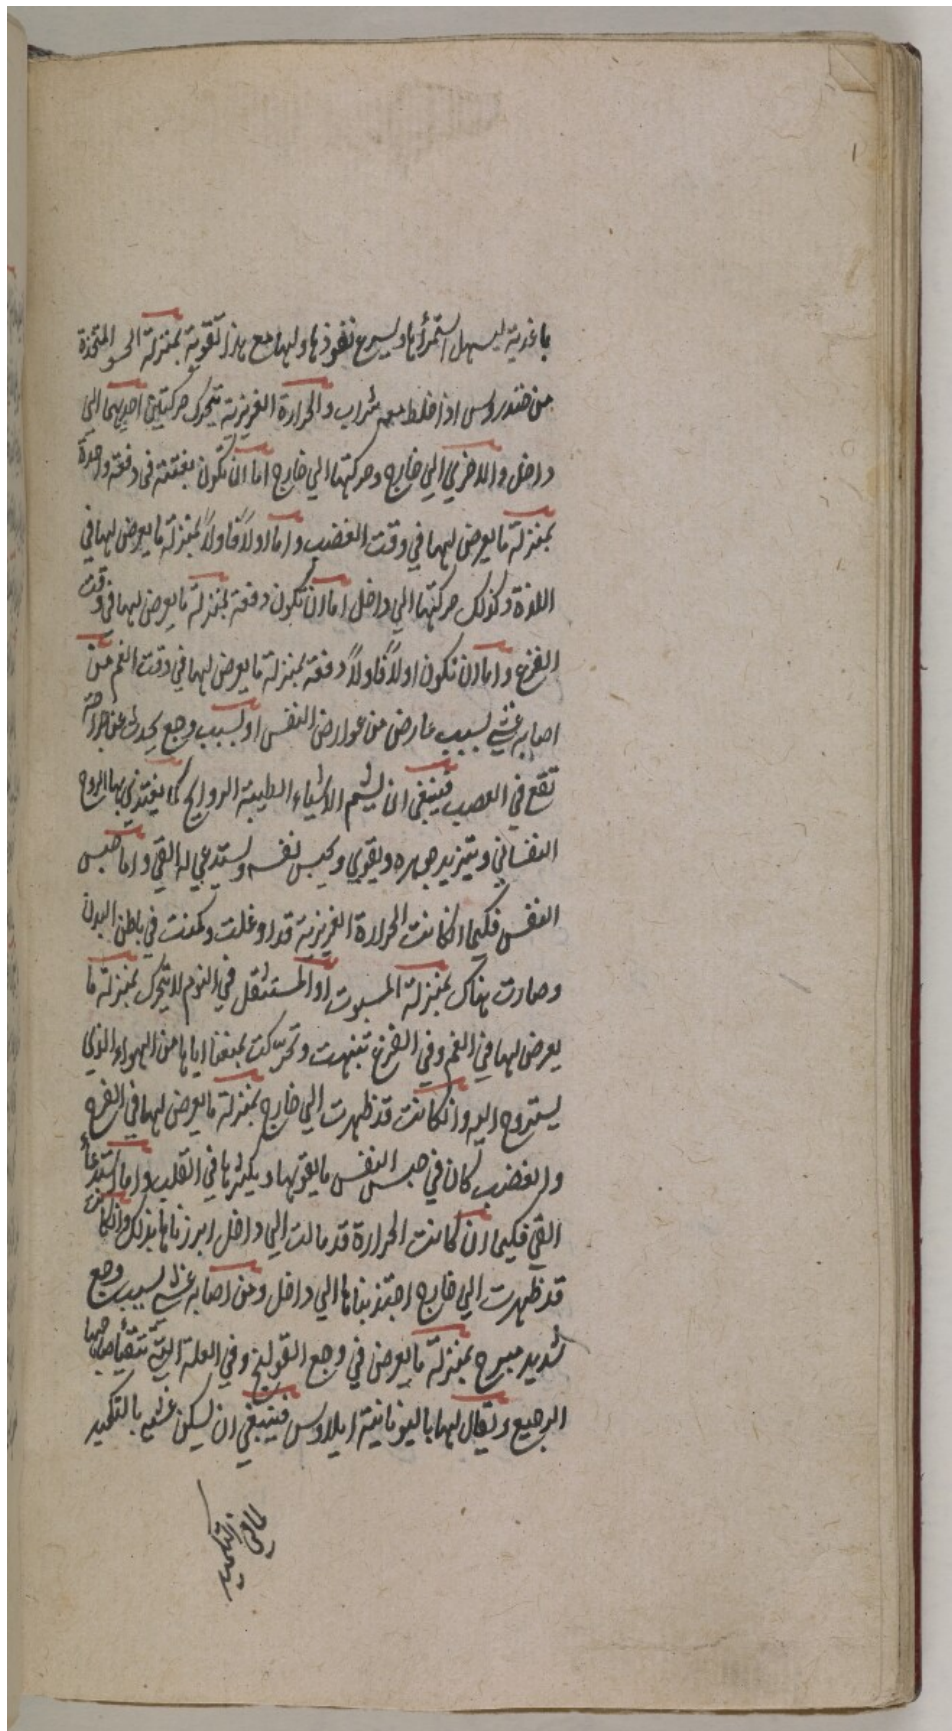 باغذية ليسهل استمرأوها ويسرع نفوذها ولها مع هذا تقوية بمنزلة الحسو المتخذة
من خندروس اذا خلط معه شراب والحرارة الغريزية تتحرك حركتين احديهما الى
داخل والاخري الي خارج وحركتها الي خارج اما ان تكون بغتة في دفعة واحدة
بمنزلة ما يعرض لها في وقت الغضب واما اولاً فاولاً بمنزلة ما يعرض لها في
اللذة وكذلك حركتها الي داخل اما ان تكون دفعة بمنزلة ما يعرض لها في وقت
الفزع واما ان تكون اولاً فاولاً دفعة بمنزلة ما يعرض لها في وقت الغم من
اصابه غشي بسبب عارض من عوارض النفس او بسبب وجع يحدث عن جراحة
تقع في العصب فينبغي ان يشم الاشياء الطيبة الروايح كما يغتذي بها الروح
النفساني ويتزيد جوهره ويقوي ويحبس نفسه ويستدعي له القي واما حبس
النفس فكيما ان كانت الحرارة الغريزية قد اوغلت وكمنت في باطن البدن
وصارت هناك بمنزلة المسبوت او المستثقل في النوم لا يتحرك بمنزلة ما
يعرض لها في الغم وفي الفزع تنبهت وتحرّكت بمنعنا اياها من الهواء الذي
يستروح اليه وان كانت قد ظهرت الي خارج بمنزلة ما يعرض لها في الفرح
والغضب كان في حبس النفس ما يقويها ويكثرها في القلب واما استدعأ
القي فكيما ان كانت الحرارة قد مالت الي داخل ابرزناها بذلك وان كانت
قد ظهرت الي خارج اجتذبناها الي داخل ومن اصابه غشي بسبب وجع
شديد مبرح بمنزلة ما يعرض في وجع القولنج وفي العلة التي يتقيأ صاحبها
الرجيع ويقال لها باليونانية ايلاوس فينبغي ان يسكن غشيه بالتكميد